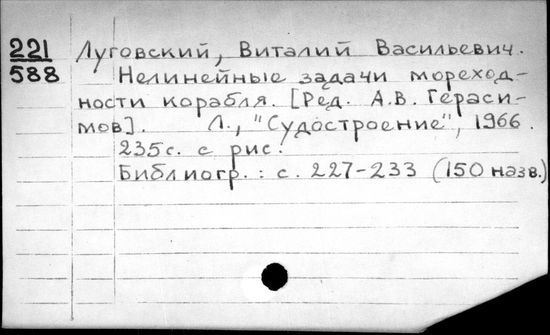 221 Луговский, Виталий Васильевич.
588 Нелинейные задачи мореход-
ности корабля. [Ред. А.В. Гераси-
мов]. Л., "Судостроение", 1966.
235с. с рис.
Библиогр.: с. 227-233 (150 назв.)